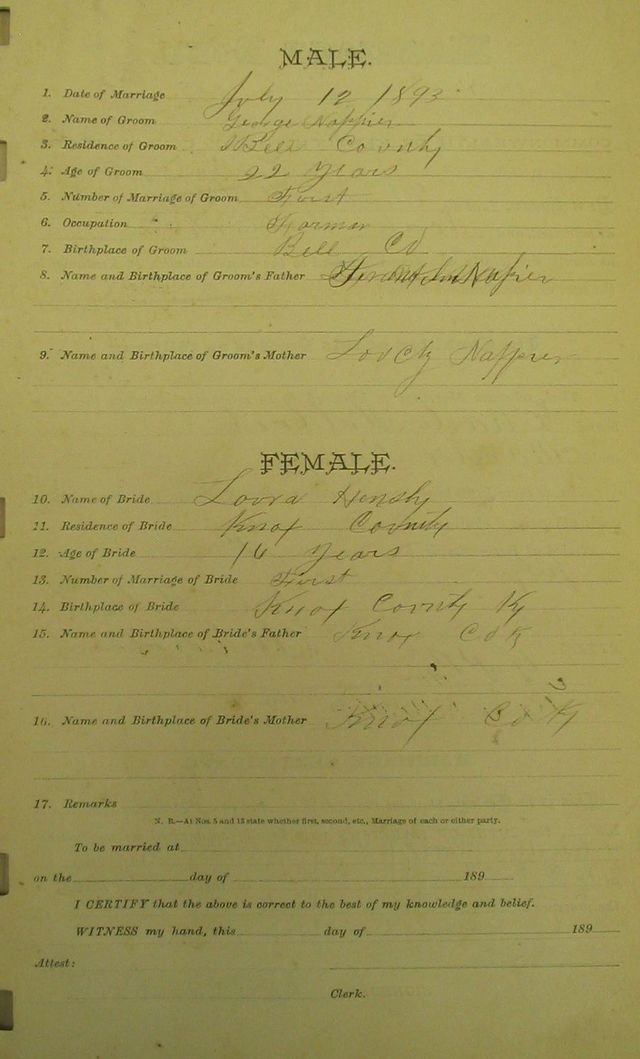 MALE.
1. Date of Marriage July 12 1893
2. Name of Groom George Nappier
3. Residence of Groom Bell County
4. Age of Groom 22 years
5. Number of Marriage of Groom First
6. Occupation Farmer
7. Birthplace of Groom Bell Co
8. Name and Birthplace of Groom's Father Napier
9. Name and Birthplace of Groom's Mother Nappier
FEMALE.
10. Name of Bride Loura Hensly
11. Residence of Bride Knox County
12. Age of Bride 16 years
13. Number of Marriage of Bride First
14. Birthplace of Bride Knox County Ky
15. Name and Birthplace of Bride's Father Knox Co K
16. Name and Birthplace of Bride's Mother Knox Co K
17. Remarks
N. B.—At Nos. 5 and 13 state whether first, second, etc., Marriage of each or either party.
To be married at
on the day of 189
I CERTIFY that the above is correct to the best of my knowledge and belief.
WITNESS my hand, this day of 189
Attest:
Clerk.